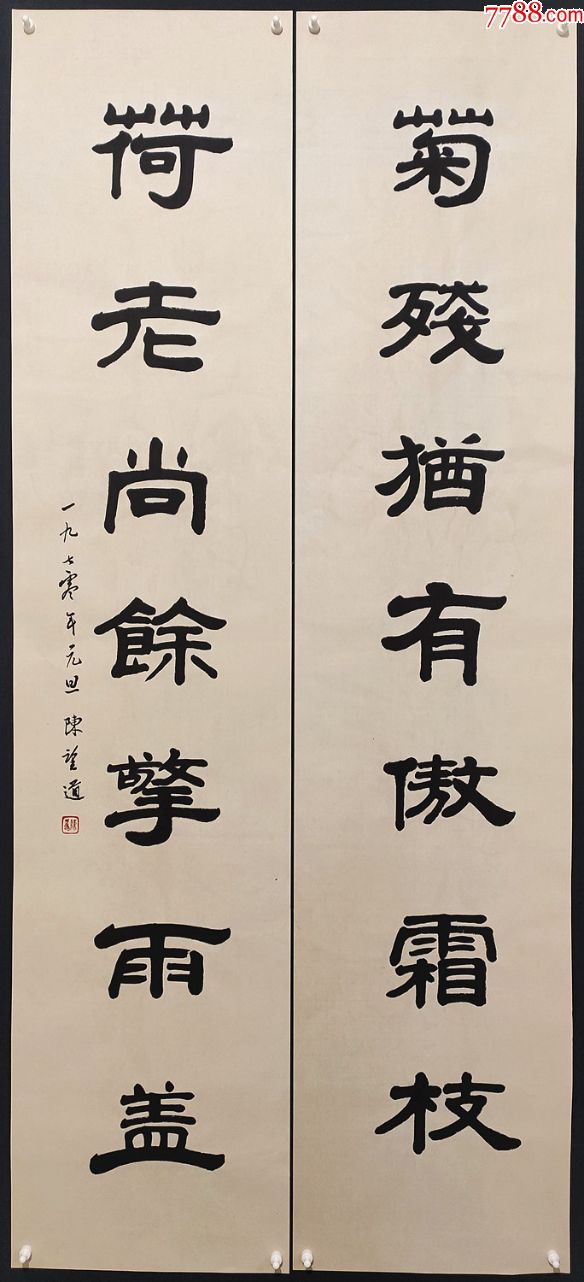 7788.com
菊殘猶有傲霜枝
荷老尚餘擎雨盖
一九七零年元旦 陳望道